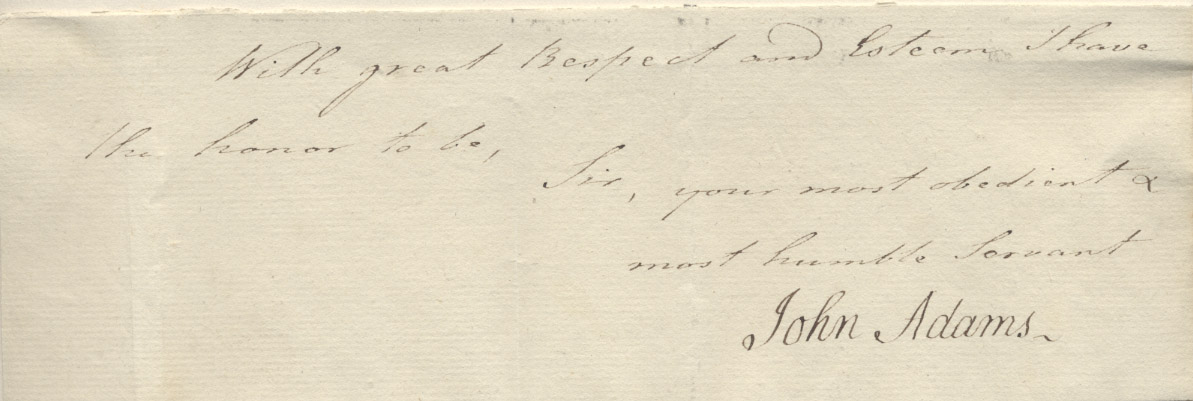 With great Respect and Esteem I have
the honor to be,
Sir, your most obedient &
most humble Servant
John Adams